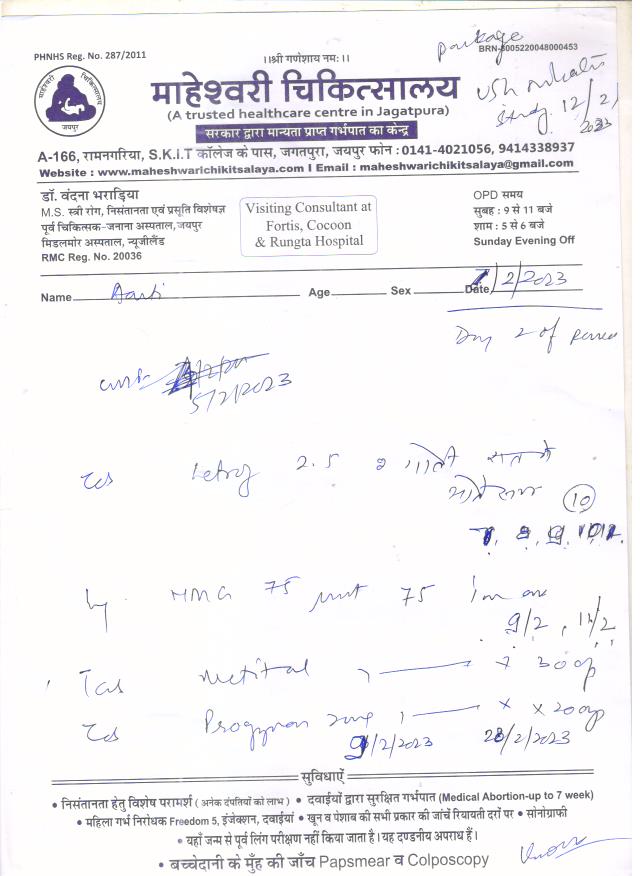 package
PHNHS Reg. No. 287/2011
।।श्री गणेशाय नमः।।
BRN-8005220048000453
माहेश्वरी चिकित्सालय
जयपुर
माहेश्वरी चिकित्सालय
(A trusted healthcare centre in Jagatpura)
12/2/2023
सरकार द्वारा मान्यता प्राप्त गर्भपात का केन्द्र
A-166, रामनगरिया, S.K.I.T कॉलेज के पास, जगतपुरा, जयपुर फोन : 0141-4021056, 9414338937
Website : www.maheshwarichikitsalaya.com I Email : maheshwarichikitsalaya@gmail.com
डॉ. वंदना भराड़िया
M.S. स्त्री रोग, निसंतानता एवं प्रसूति विशेषज्ञ
पूर्व चिकित्सक-जनाना अस्पताल, जयपुर
मिडलमोर अस्पताल, न्यूजीलैंड
RMC Reg. No. 20036
Visiting Consultant at
Fortis, Cocoon
& Rungta Hospital
OPD समय
सुबह : 9 से 11 बजे
शाम : 5 से 6 बजे
Sunday Evening Off
Name Aarti Age Sex Date /2/2023
Day 2 of
5/2/2023
2.5 2 गोली रात को
10
HMG 75 unit 75 Im on
9/2, 11/2
Tab
Progynon 2mg
9/2/2023 28/2/2023
सुविधाऐं
• निसंतानता हेतु विशेष परामर्श (अनेक दंपतियों को लाभ) • दवाईयों द्वारा सुरक्षित गर्भपात (Medical Abortion-up to 7 week)
• महिला गर्भ निरोधक Freedom 5, इंजेक्शन, दवाईयां • खून व पेशाब की सभी प्रकार की जांचें रियायती दरों पर • सोनोग्राफी
• यहाँ जन्म से पूर्व लिंग परीक्षण नहीं किया जाता है। यह दण्डनीय अपराध हैं।
• बच्चेदानी के मुँह की जाँच Papsmear व Colposcopy